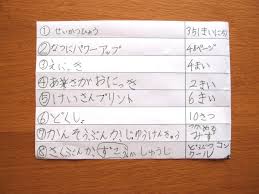 ① せいかつひょう 35(まいにち)
② なつにパワーアップ 48ページ
③ えにっき 4まい
④ お楽さがおにっき 2まい
⑤ けいさんプリント 6まい
⑥ どくしょ 10さつ
⑦ かんそうぶんか じゆうけんきゅう
⑧ さくぶんか ずこうか しゅうじ コンクール